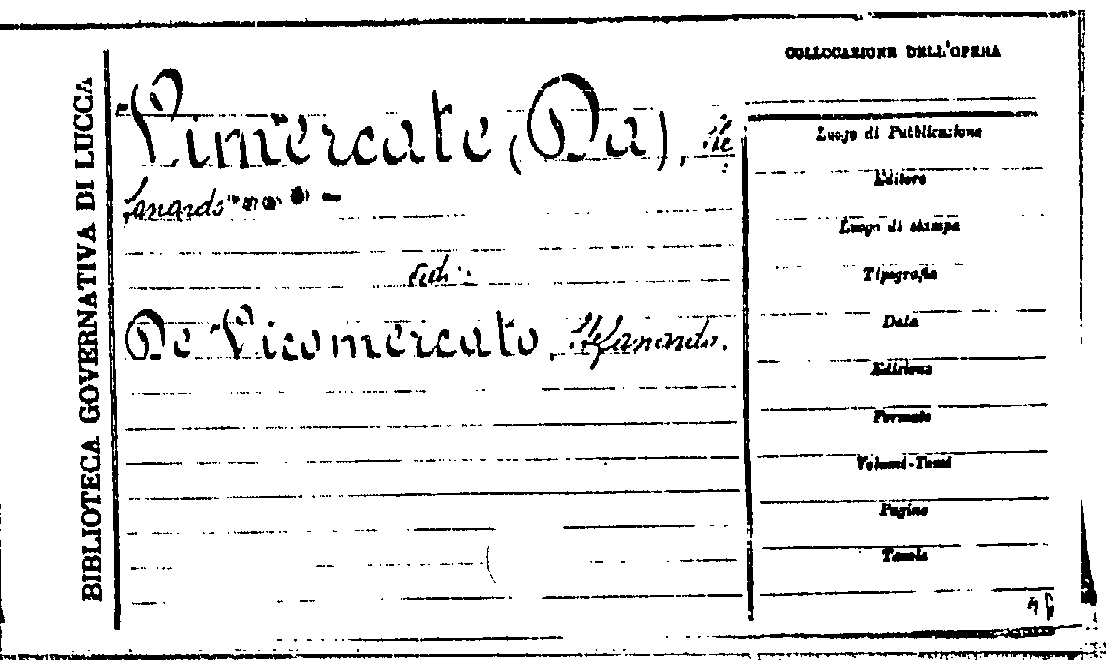 BIBLIOTECA GOVERNATIVA DI LUCCA
Vimercate (Da), Ste
fanardo
vedi:
De Vicomercato, Stefanardo.
COLLOCAZIONE DELL'OPERA
Luogo di Pubblicazione
Editore
Luogo di stampa
Tipografia
Data
Edizione
Formato
Volumi-Tomi
Pagine
Tavole